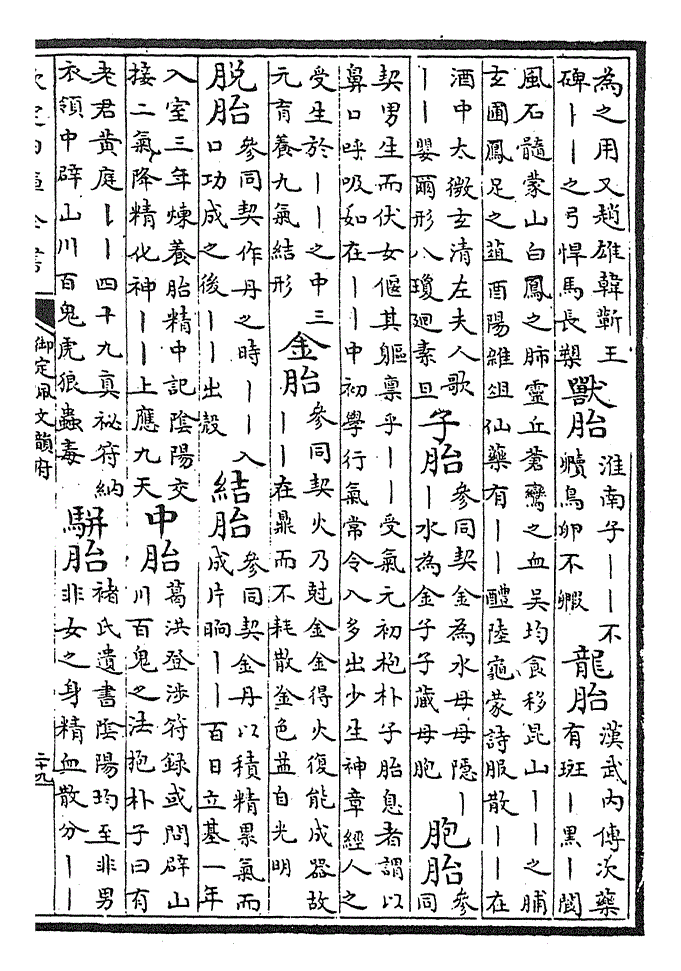 為之用又趙雄韓蘄王
碑丨丨之弓悍馬長槊
獸胎
淮南子丨丨不
贕鳥卵不毈
龍胎
漢武内傳次藥
有斑丨黑丨閬
風石髓蒙山白鳳之肺靈丘蒼鸞之血吳均食移昆山丨丨之脯
玄圃鳳足之葅酉陽雜俎仙藥有丨丨醴陸龜蒙詩服散丨丨在
酒中太微玄清左夫人歌
丨丨嬰爾形八瓊廻素旦
子胎
參同契金為水母母隱丨
丨水為金子子藏母胞
胞胎
參
同
契男生而伏女偃其軀禀乎丨丨受氣元初抱朴子胎息者謂以
鼻口呼吸如在丨丨中初學行氣常令入多出少生神章經人之
受生於丨丨之中三
元育養九氣結形
金胎
參同契火乃尅金金得火復能成器故
丨丨在鼎而不耗散金色益自光明
脱胎
參同契作丹之時丨丨入
口功成之後丨丨出殼
結胎
參同契金丹以積精累氣而
成片晌丨丨百日立基一年
入室三年煉養胎精中記陰陽交
接二氣降精化神丨丨上應九天
中胎
葛洪登涉符録或問辟山
川百鬼之法抱朴子曰有
老君黄庭丨丨四十九真祕符納
衣領中辟山川百鬼虎狼蟲毒
駢胎
褚氏遺書陰陽均至非男
非女之身精血散分丨丨
欽定四庫全書
御定佩文韻府